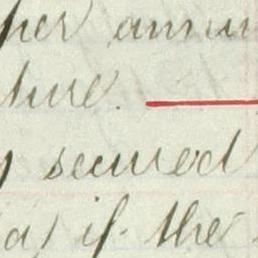 per annum
ture.
secured
if the